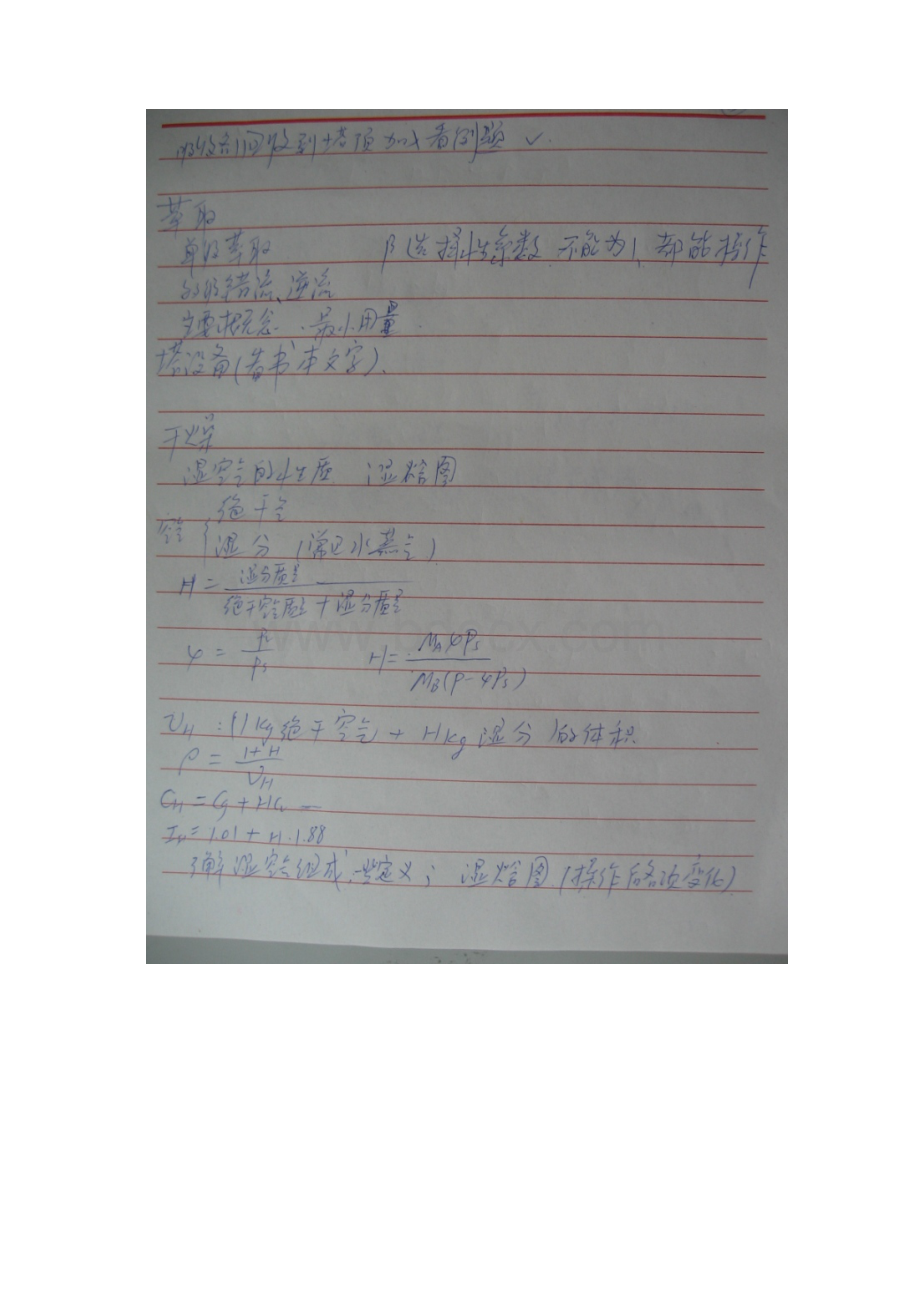 吸收剂回收到塔顶加入看例题 ✓.
萃取
单级萃取 β选择性系数 不能为1, 都能操作
多级错流、逆流
主要概念、最小用量.
塔设备(看书本文字).
干燥
湿空气的性质 湿焓图
绝干气
空气{
湿分 (常见水蒸气)
H = 湿分质量 / (绝干空气质量 + 湿分质量)
φ = P / Ps H = MAφPs / MB(P-φPs)
υH : (1kg绝干空气 + Hkg湿分)的体积
ρ = (1+H) / υH
CH = Cg + HCv
= 1.01 + H·1.88
了解湿空气组成、一些定义; 湿焓图 (操作后各项变化)